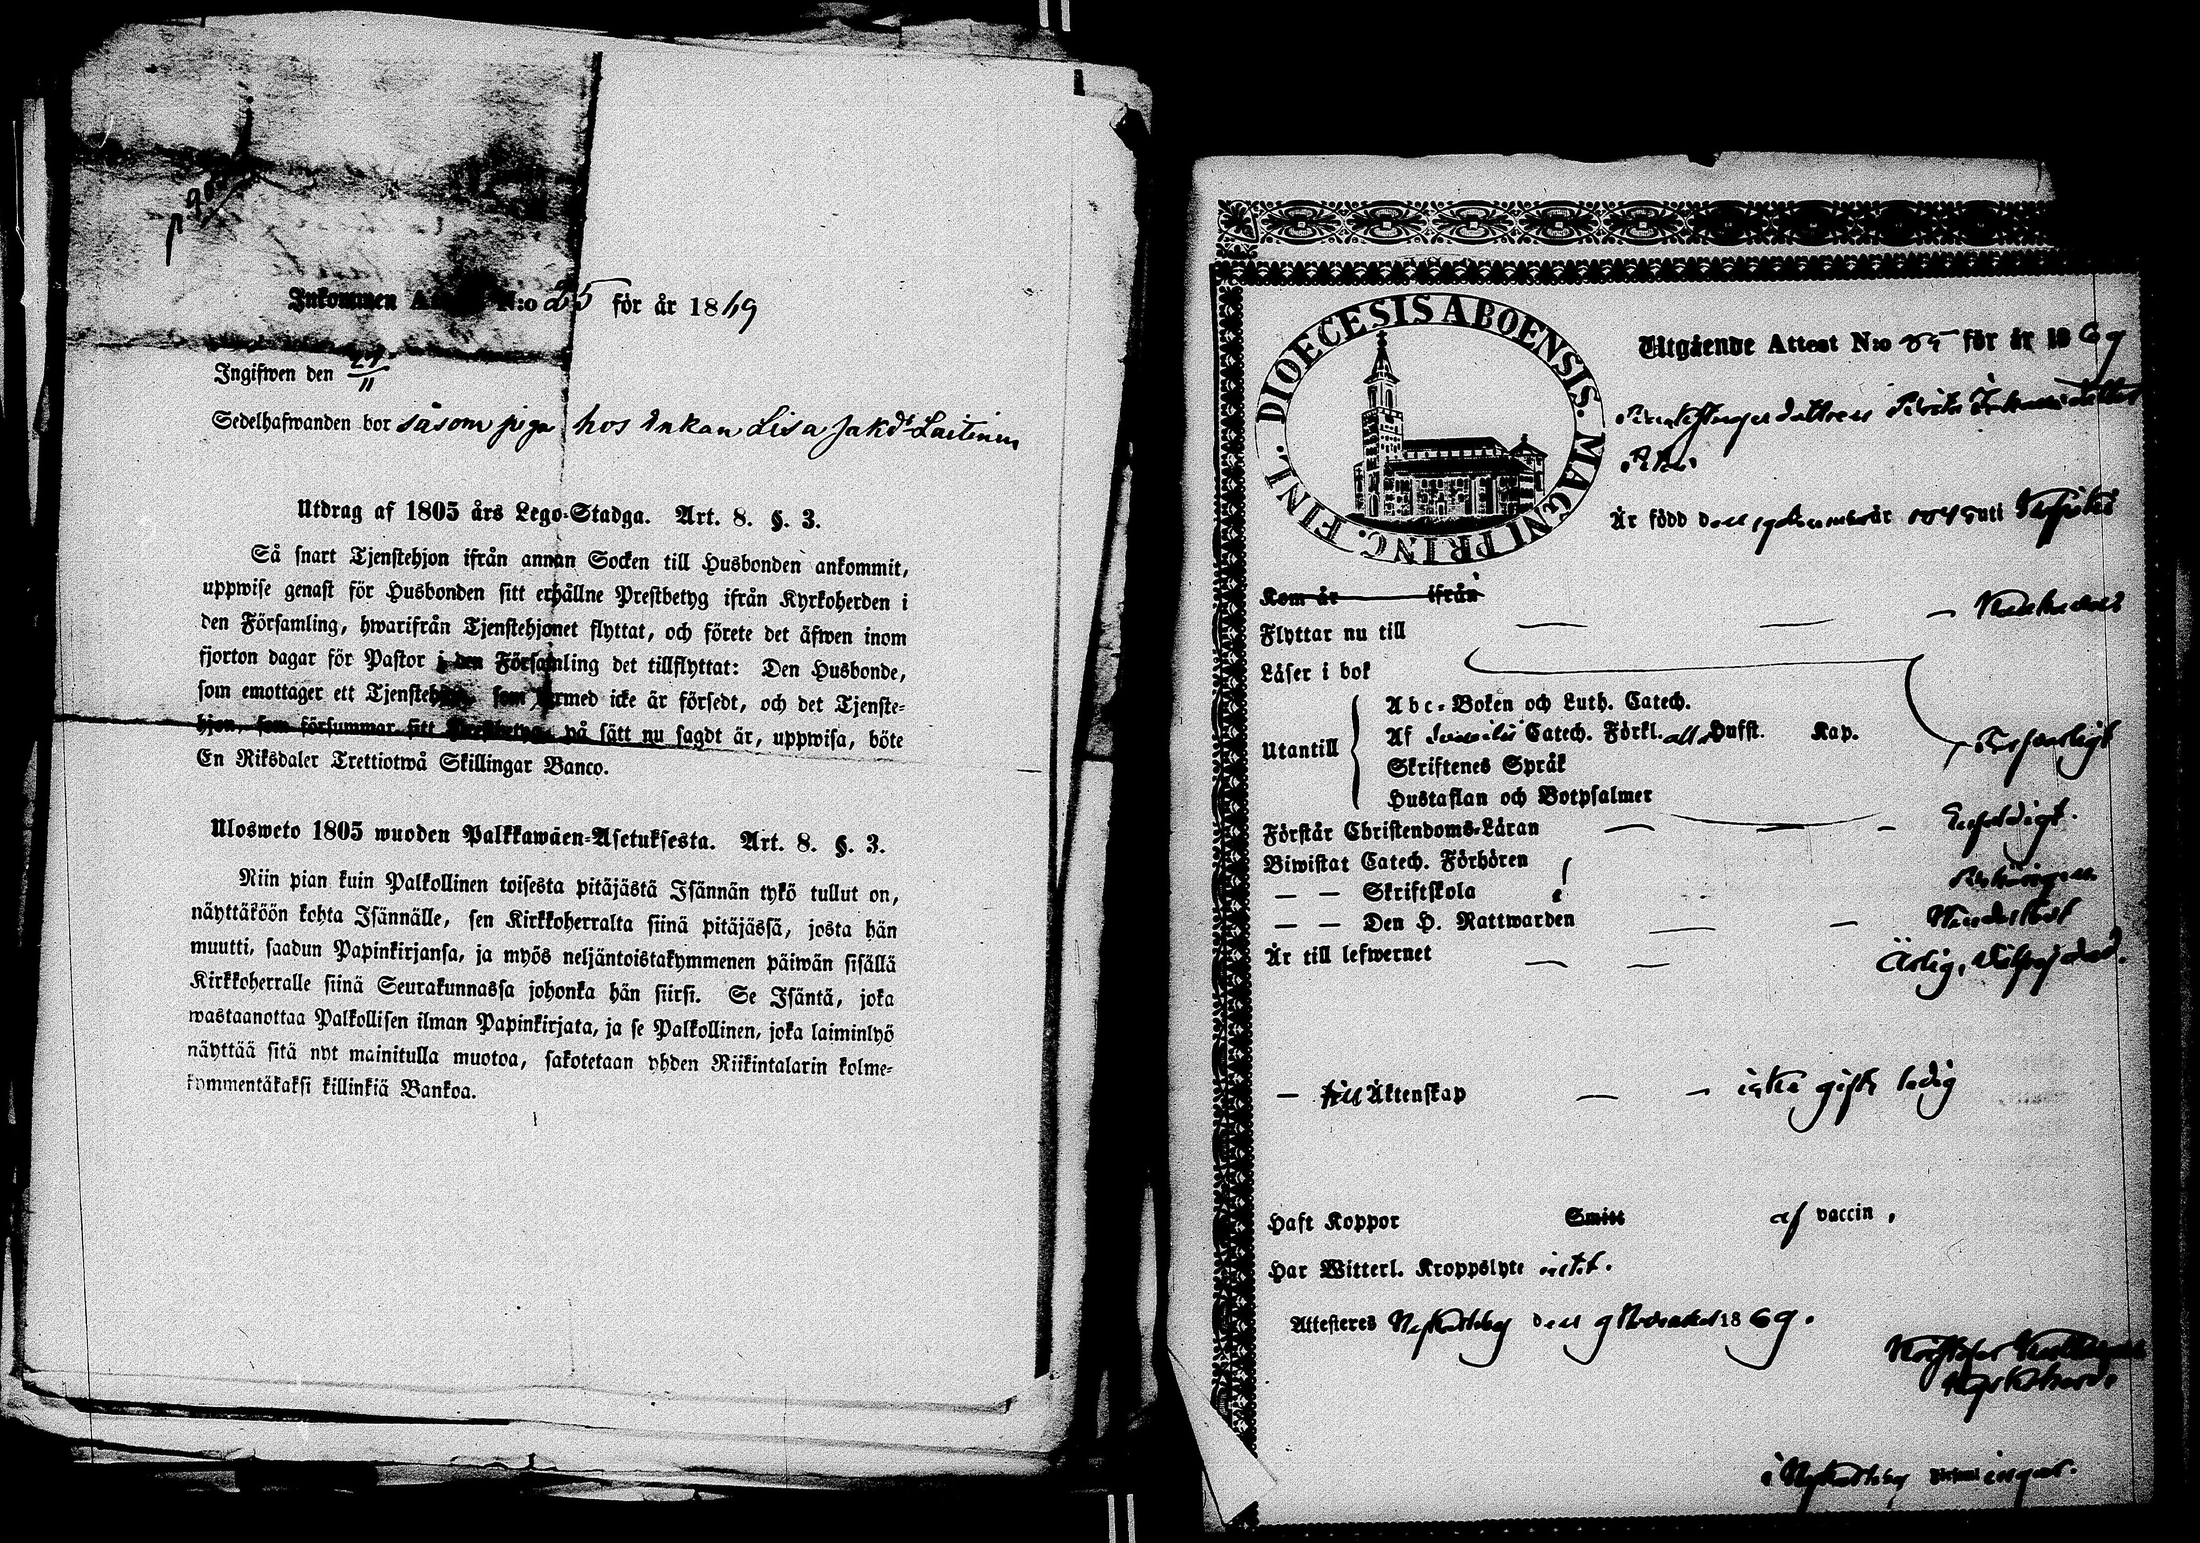 Inkommen N:o 25 för år 1869
Ingifwen den 29/11
Sedelhafwanden bor såsom piga hos Enkan Lisa Jakdr Laitinen
Utdrag af 1805 års Lego-Stadga. Art. 8. §. 3.
Så snart Tjenstehjon ifrån annan Socken till Husbonden ankommit,
uppwise genast för Husbonden sitt erhållne Prestbetyg ifrån Kyrkoherden i
den Församling, hwarifrån Tjenstehjonet flyttat, och förete det äfwen inom
fjorton dagar för Pastor i den Församling det tillflyttat: Den Husbonde,
som emottager ett Tjenstehjon, som härmed icke är försedt, och det Tjenste-
hjon, som försummar sitt Prestbetyg, på sätt nu sagdt är, uppwisa, böte
En Riksdaler Trettiotwå Skillingar Banco.
Ulosweto 1805 wuoden Palkkawäen-Asetuksesta. Art. 8. §. 3.
Niin pian kuin Palkollinen toisesta pitäjästä Isännän tykö tullut on,
näyttäköön kohta Isännälle, sen Kirkkoherralta siinä pitäjässä, josta hän
muutti, saadun Papinkirjansa, ja myös neljäntoistakymmenen päiwän sisällä
Kirkkoherralle siinä Seurakunnassa johonka hän siirsi. Se Isäntä, joka
wastaanottaa Palkollisen ilman Papinkirjata, ja se Palkollinen, joka laiminlyö
näyttää sitä nyt mainitulla muotoa, sakotetaan yhden Riikintalarin kolme-
kymmentäkaksi killinkiä Bankoa.
DIOECESIS ABOENSIS. MAGNI PRINC. FINL.
Utgående Attest N:o för år 1869
Är född den år uti
Kom år ifrån
Flyttar nu till
Läser i bok
Abc-Boken och Luth. Catech.
Utantill Af Catech. Förkl. alla Hufst. Kap. Försvarligt
Skriftenes Språk
Hustaflan och Botpsalmer
Förstår Christendoms-Läran Enfaldigt.
Biwistat Catech. Förhören
— — Skriftskola
— — Den H. Nattwarden
Är till lefwernet Ärlig,
— till Äktenskap icke gift, ledig
Haft Koppor Smitt af vaccin,
Har Witterl. Kroppslyte intet.
Attesteres Nykarleby den 9 November 1869.
i Nykarleby